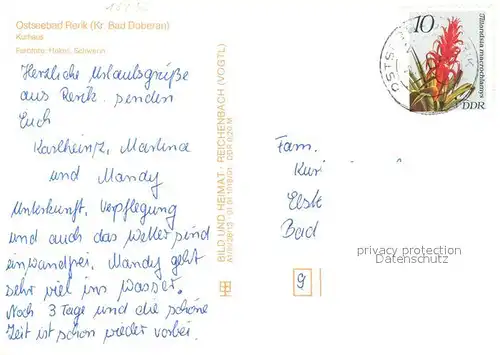 Ostseebad Rerik (Kr. Bad Doberan)
Kurhaus
Herzliche Urlaubsgrüße
aus Rerik senden
Euch
Karlheinz, Martina
und Mandy
Unterkunft, Verpflegung
und auch das Wetter sind
einwandfrei. Mandy geht
sehr viel ins Wasser.
Noch 3 Tage und die schöne
Zeit ist schon wieder vorbei.
BILD UND HEIMAT · REICHENBACH (VOGTL)
10
Tillandsia macrochlamys
DDR
Fam.
Bad
privacy protection
Datenschutz